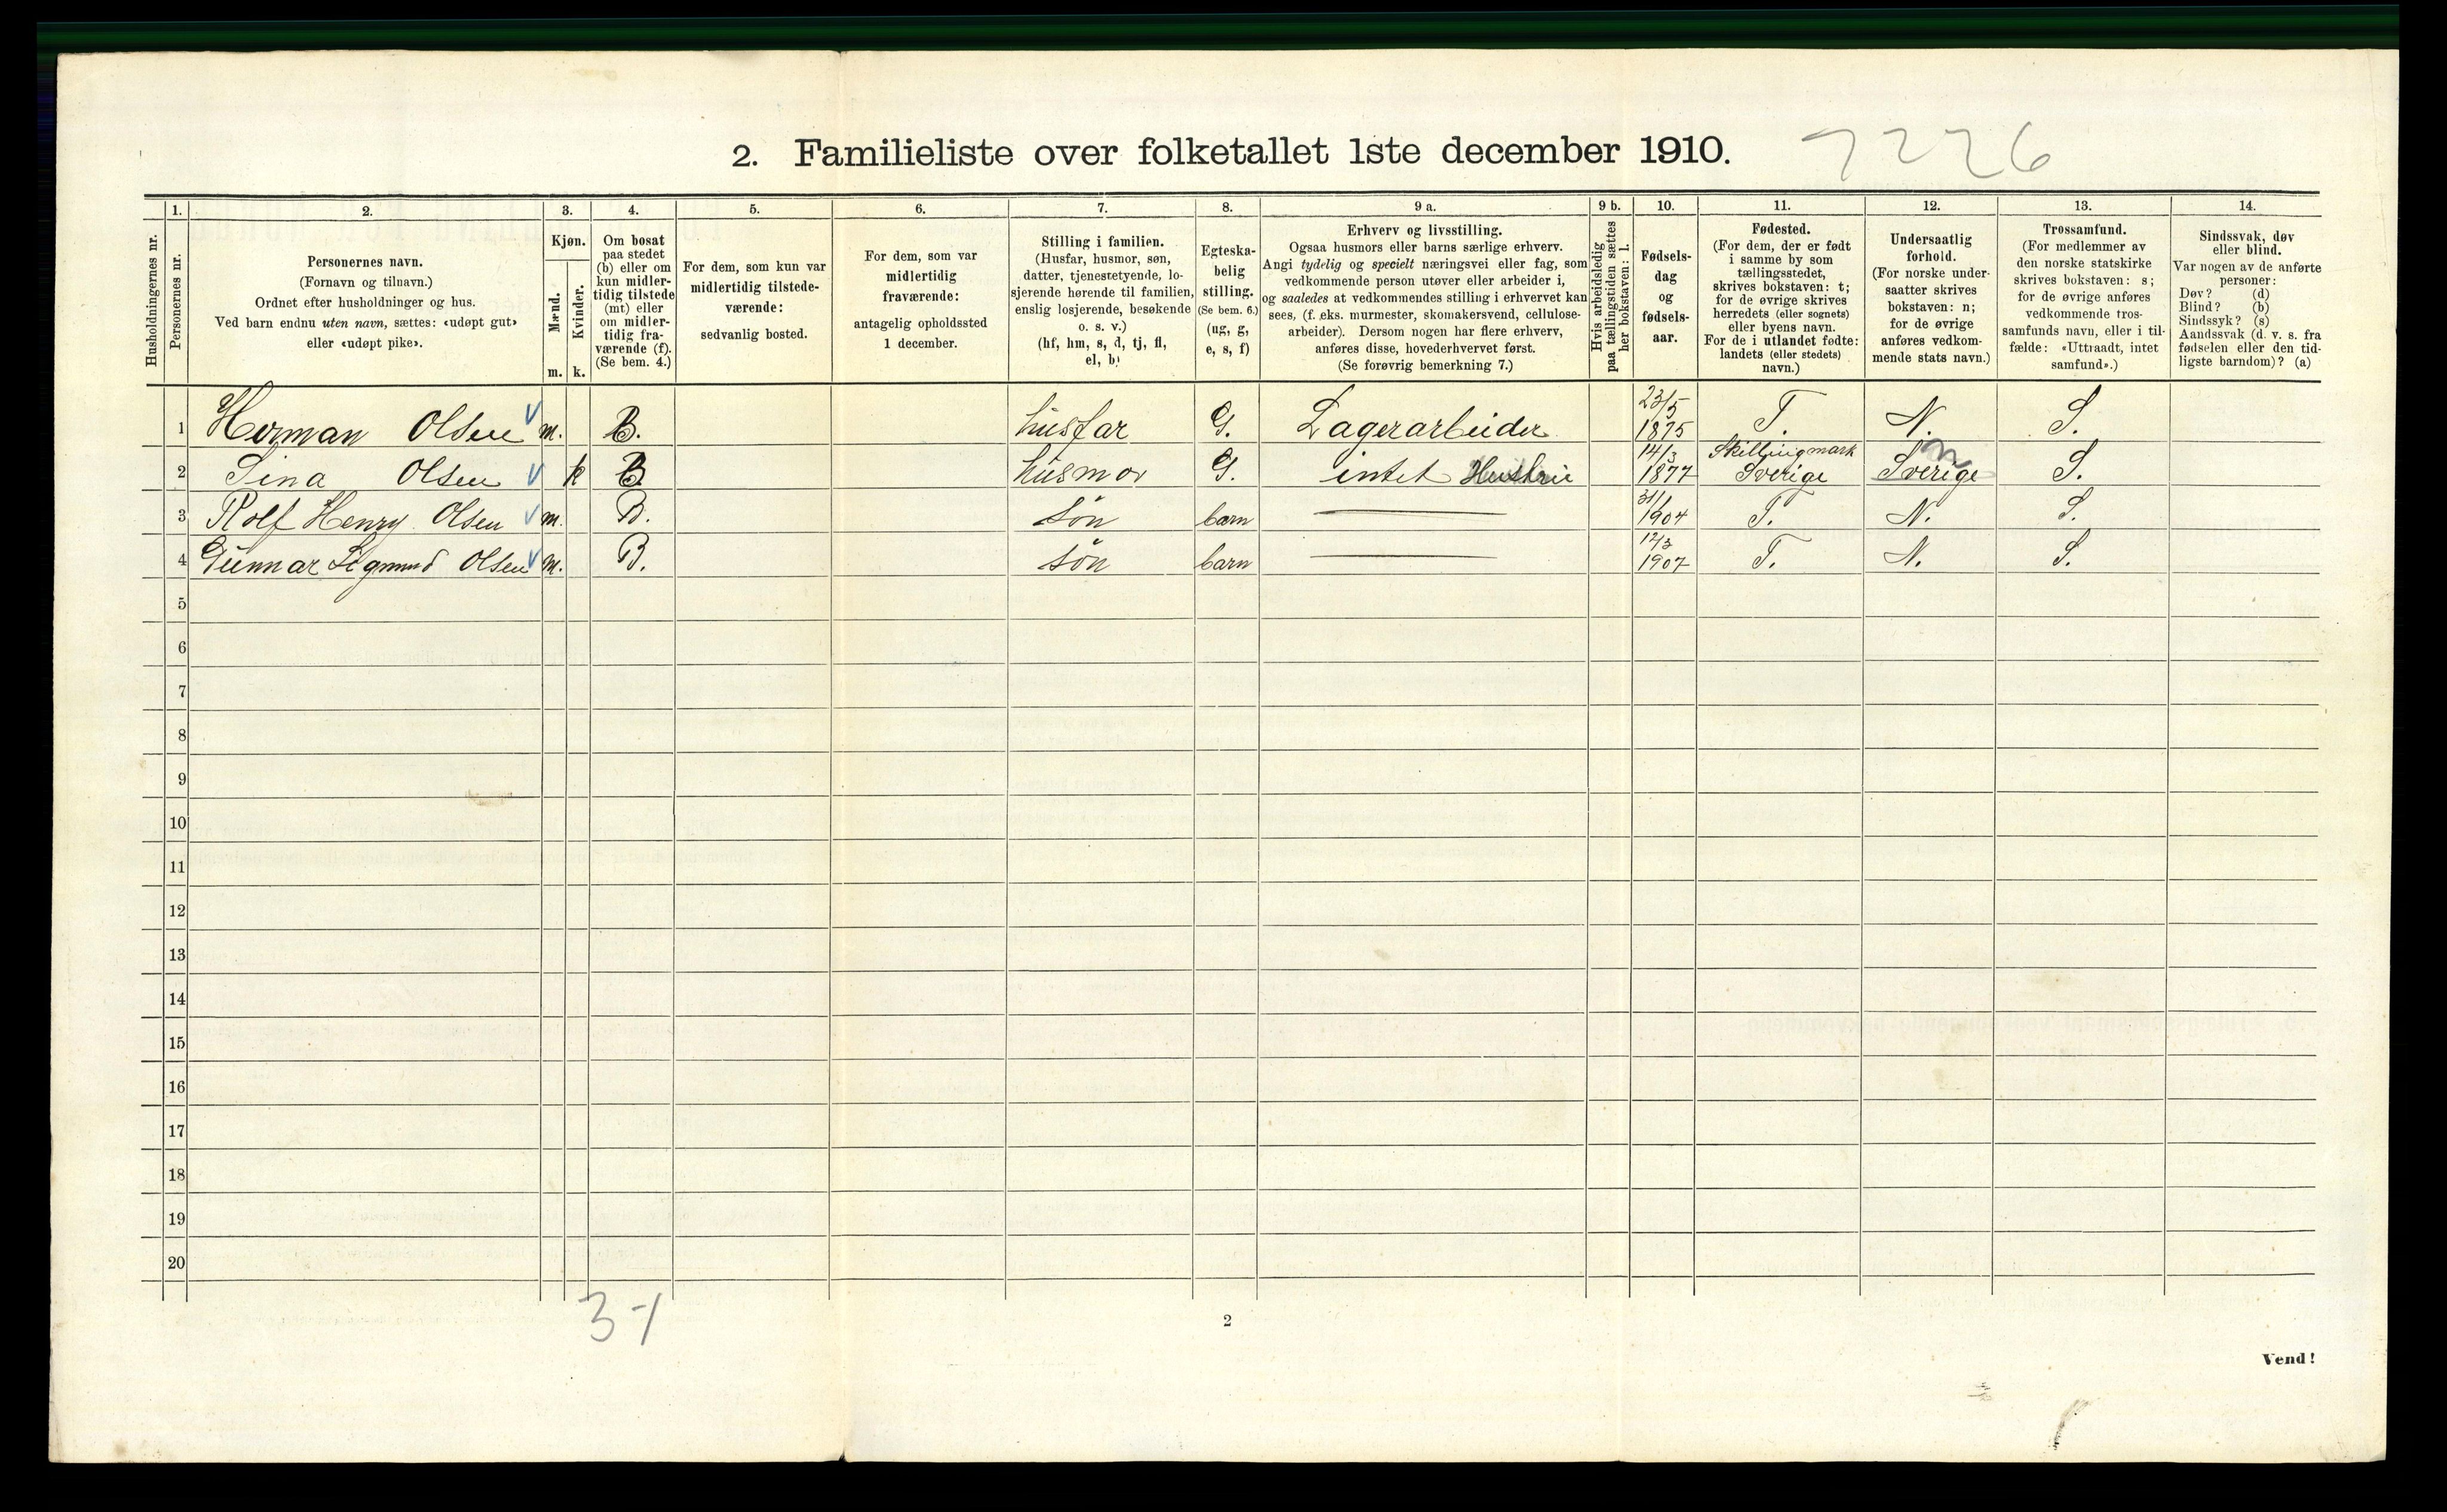 2. Familieliste over folketallet 1ste december 1910. 7226
Husholdningernes nr.
1. Personernes nr.
2. Personernes navn.
(Fornavn og tilnavn.)
Ordnet efter husholdninger og hus.
Ved barn endnu uten navn, sættes: «udøpt gut»
eller «udøpt pike».
3. Kjøn.
Mænd. m.
Kvinder. k.
4. Om bosat
paa stedet
(b) eller om
kun midler-
tidig tilstede
(mt) eller
om midler-
tidig fra-
værende (f).
(Se bem. 4.)
5. For dem, som kun var
midlertidig tilstede-
værende:
sedvanlig bosted.
6. For dem, som var
midlertidig
fraværende:
antagelig opholdssted
1 december.
7. Stilling i familien.
(Husfar, husmor, søn,
datter, tjenestetyende, lo-
sjerende hørende til familien,
enslig losjerende, besøkende
o. s. v.)
(hf, hm, s, d, tj, fl,
el, b)
8. Egteska-
belig
stilling.
(Se bem. 6.)
(ug, g,
e, s, f)
9 a. Erhverv og livsstilling.
Ogsaa husmors eller barns særlige erhverv.
Angi tydelig og specielt næringsvei eller fag, som
vedkommende person utøver eller arbeider i,
og saaledes at vedkommendes stilling i erhvervet kan
sees, (f. eks. murmester, skomakersvend, cellulose-
arbeider). Dersom nogen har flere erhverv,
anføres disse, hovederhvervet først.
(Se forøvrig bemerkning 7.)
9 b. Hvis arbeidsledig
paa tællingstiden sættes
her bokstaven: l.
10. Fødsels-
dag
og
fødsels-
aar.
11. Fødested.
(For dem, der er født
i samme by som
tællingsstedet,
skrives bokstaven: t;
for de øvrige skrives
herredets (eller sognets)
eller byens navn.
For de i utlandet fødte:
landets (eller stedets)
navn.)
12. Undersaatlig
forhold.
(For norske under-
saatter skrives
bokstaven: n;
for de øvrige
anføres vedkom-
mende stats navn.)
13. Trossamfund.
(For medlemmer av
den norske statskirke
skrives bokstaven: s;
for de øvrige anføres
vedkommende tros-
samfunds navn, eller i til-
fælde: «Uttraadt, intet
samfund».)
14. Sindssvak, døv
eller blind.
Var nogen av de anførte
personer:
Døv? (d)
Blind? (b)
Sindssyk? (s)
Aandssvak (d. v. s. fra
fødselen eller den tid-
ligste barndom)? (a)
1 Herman Olsen m. B. husfar G. Lagerarbeider 23/5 1875 T. N. S.
2 Sina Olsen k B husmor G. intet Hustru 14/3 1877 Skillingmark Sverige Sverige n S.
3 Rolf Henry Olsen m. B. søn barn 31/1 1904 T. N. S.
4 Gunnar Sigmund Olsen m. B. søn barn 12/3 1907 T. N. S.
5
6
7
8
9
10
11
12
13
14
15
16
17
18
19
20
3-1
2
Vend!